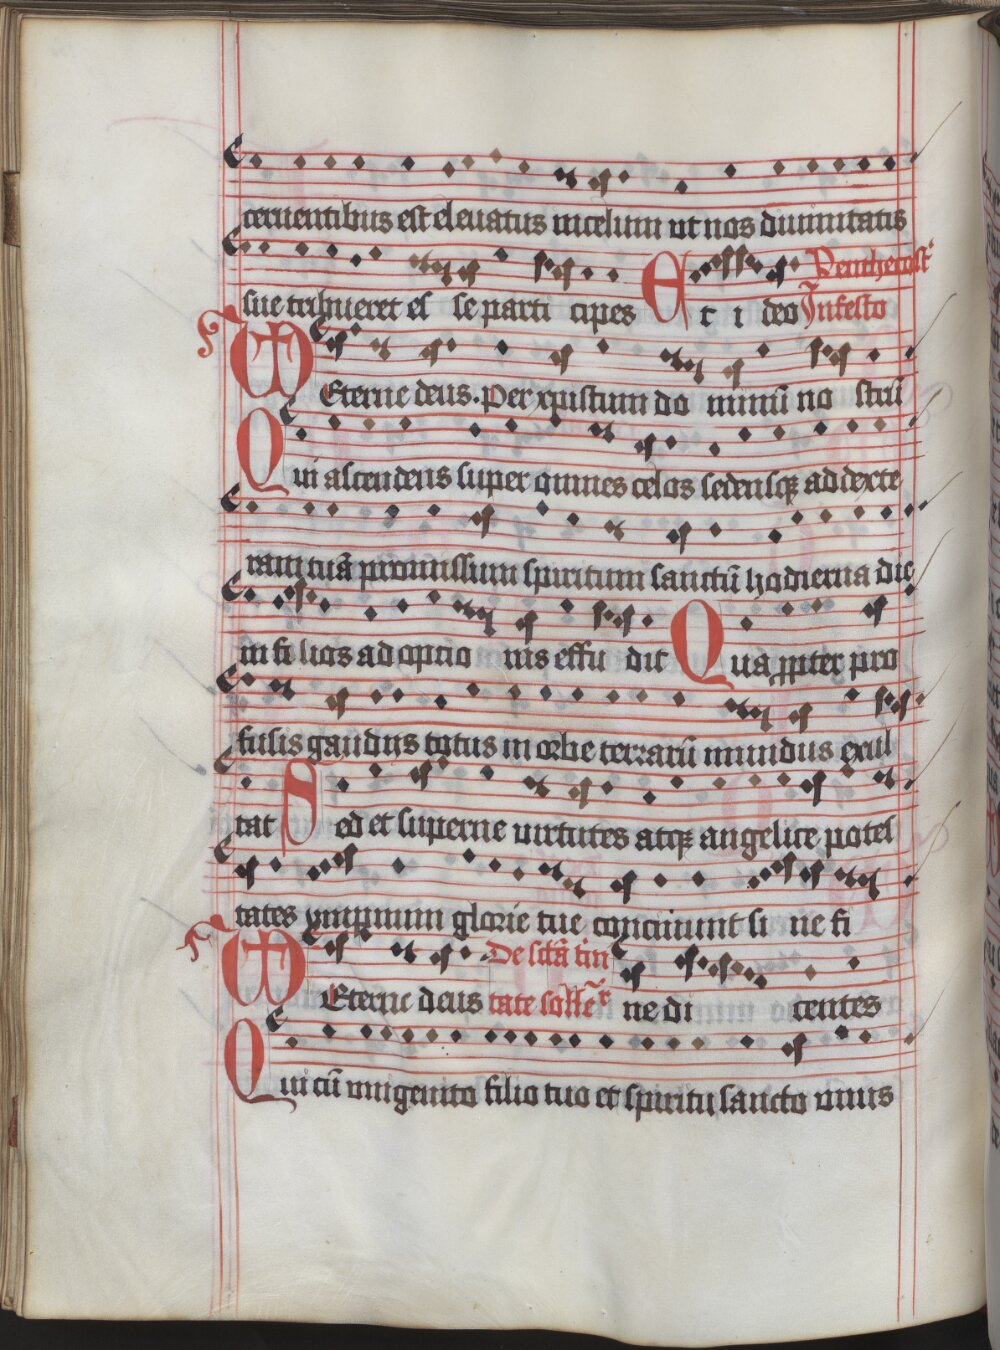 cernentibus est eleuatus in celum ut nos diuinitatis
sue tribueret es se parti cipes Et i deo
Penthecost
In festo
Eterne deus. Per xpistum do minũ no strũ
Qui ascendens super omnes celos sedensq; ad dexte
ram tuã promissum spiritum sanctũ hodierna die
in fi lios ad optio nis effu dit Qua ppter pro
fusis gaudiis totus in orbe terrarũ mundus exul
tat Sed et superne uirtutes atq; angelice potes
tates ympnum glorie tue concinunt si ne fi
De sctã tri
Eterne deus tate ne di centes
Qui cũ unigenito filio tuo et spiritu sancto unus